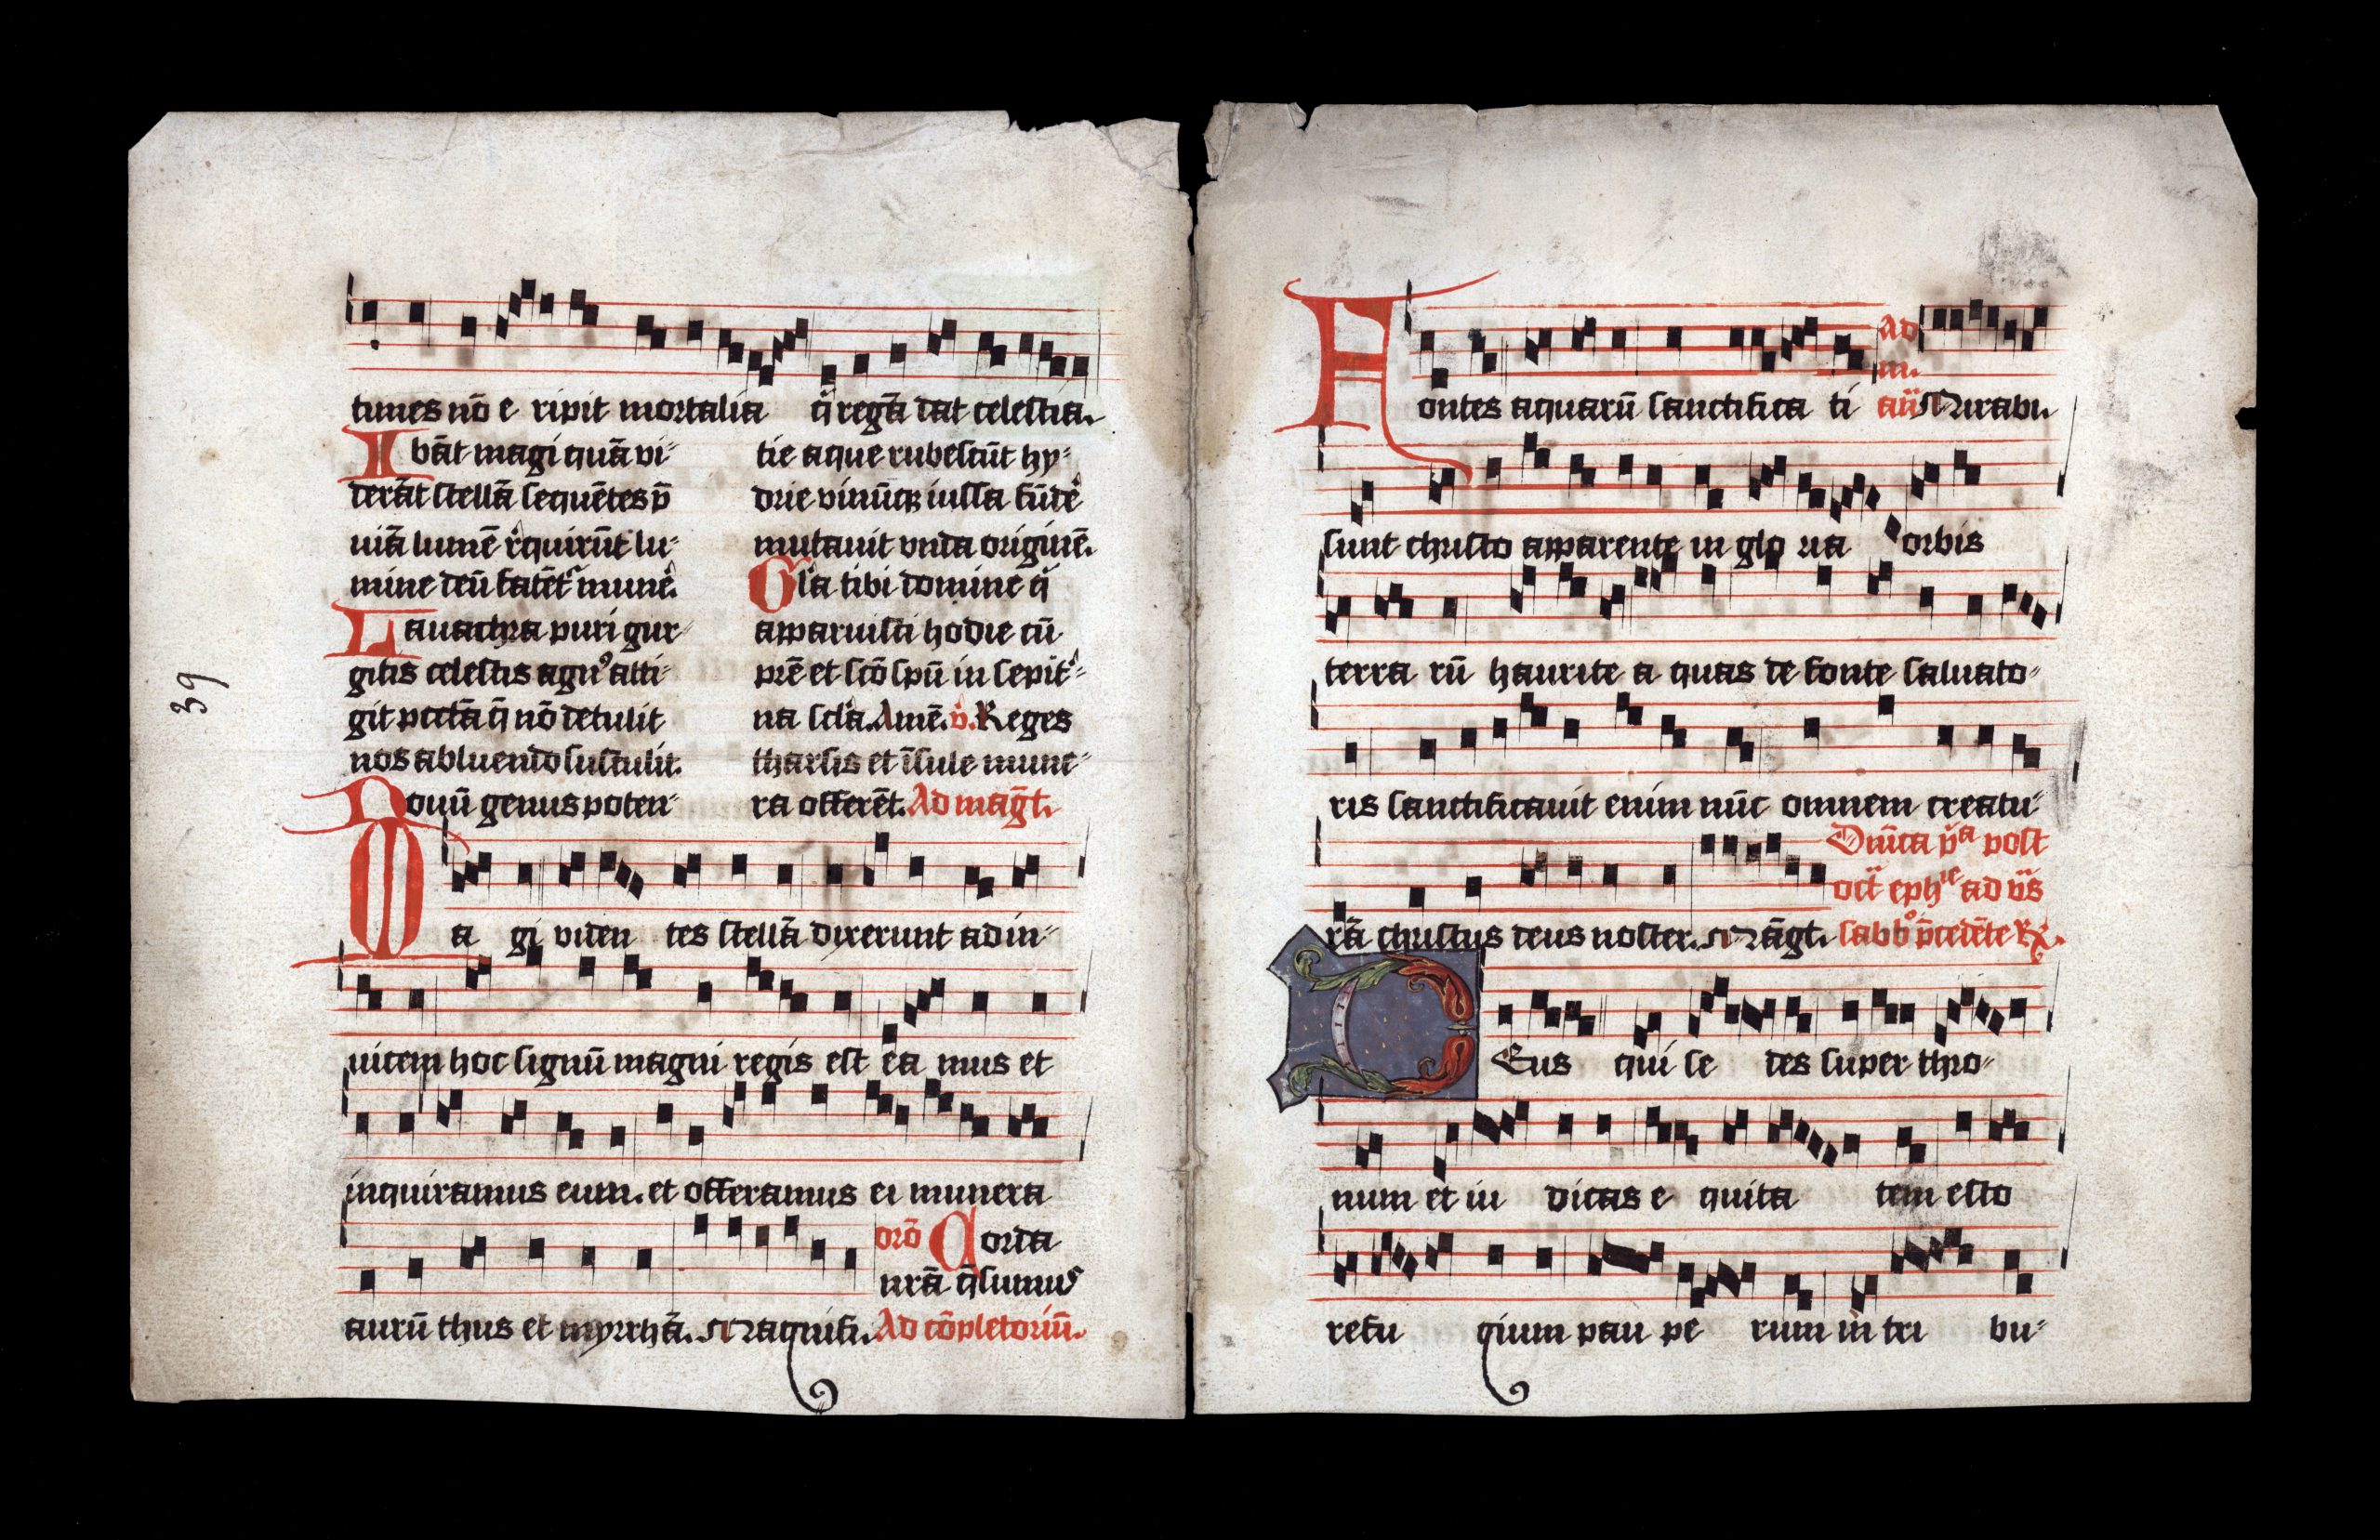 39
times nō e ripit mortalia q̄ regā dat celestia.
Ibāt magi quā vi-
derāt stellā sequētes p̄
uiā lumē reͣquirūt lu-
mine deū fatēt᷑ munē.
Lauachra puri gur-
gitis celestis agnꝰ atti-
git pcctā q̄ nō detulit
nos abluendo sustulit.
Nouū genus poten-
tie aque rubescūt hy-
drie vinūqꝫ iussa fūdē
mutauit vnda originē.
Gl̄a tibi domine q̄
apparuisti hodie cū
pr̄e et scō sp̄u in sepit̄-
na scl̄a. Amē. v̄. Reges
tharsis et īsule mune-
ra offerēt. Ad magt̄.
Ma gi viden tes stellā dixerunt ad in-
uicem hoc signū magni regis est ea mus et
inquiramus eum. et offeramus ei munera
orō Corda
nrā q̄sumus
aurū thus et myrrhā. Magnifi. Ad cōpletoriū.
Fontes aquarū sanctifica ti Ad m. añ Mirabi.
sunt christo apparente in glo ria orbis
terra rū haurite a quas de fonte saluato-
ris sanctificauit enim nūc omnem creatu-
Dn̄ica pͣ post
oct̄ ephie ad v̄s
rā christus deus noster. Māgt. sabbo p̄cedēte R.
Deus qui se des super thro-
num et iu dicas e quita tem esto
refu gium pau pe rum in tri bu-